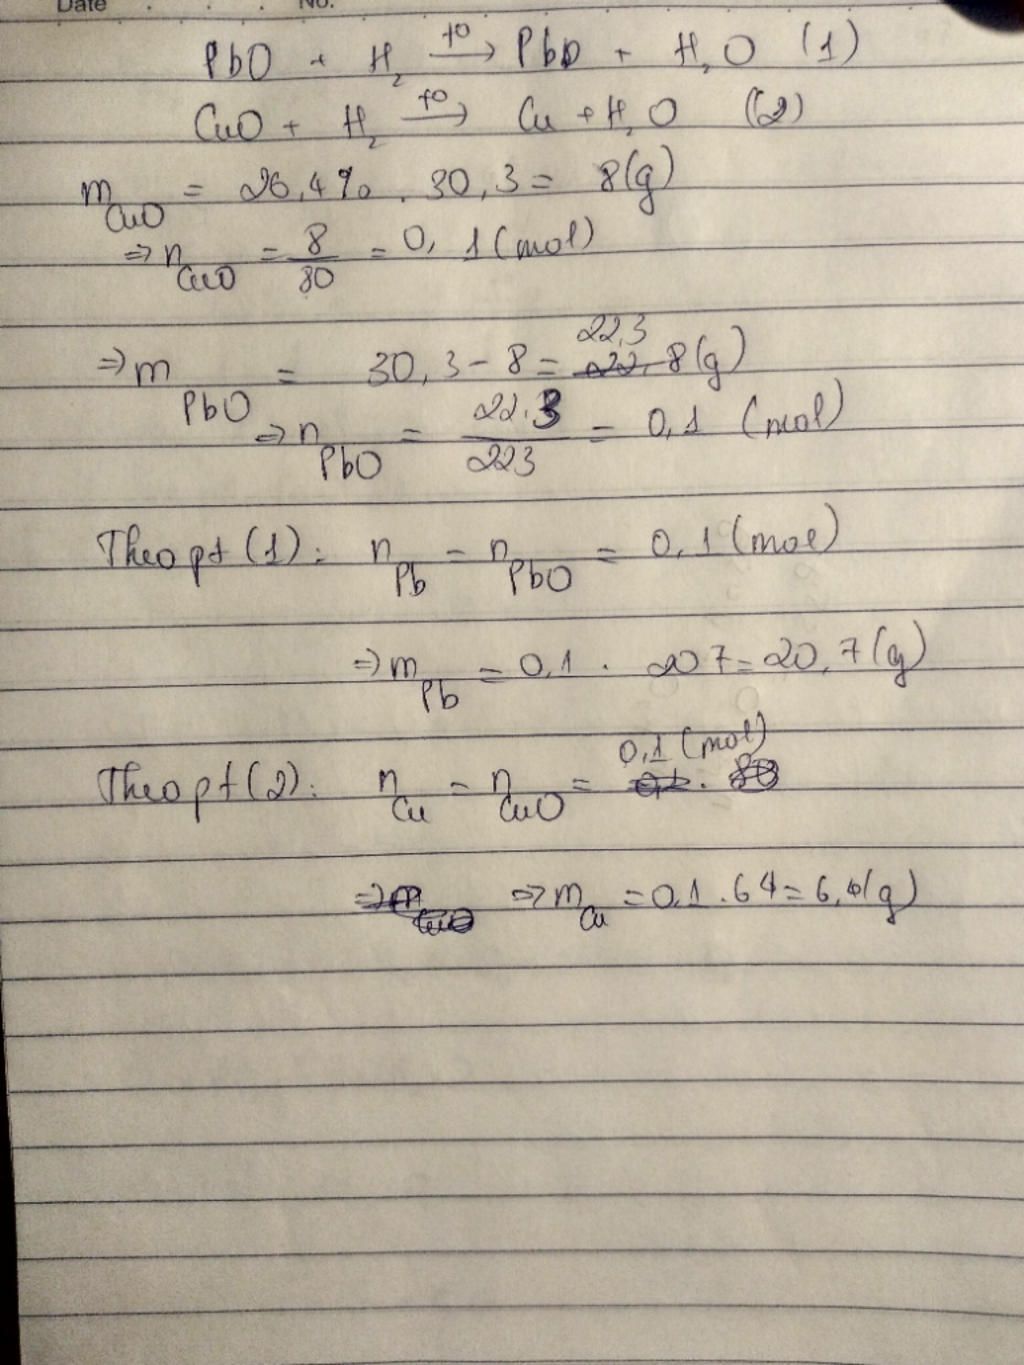 Date No.
PbO + H₂ →(t°) Pb + H₂O (1)
CuO + H₂ →(t°) Cu + H₂O (2)
m_CuO = 26,4% . 30,3 = 8(g)
⇒ n_CuO = 8/80 = 0,1 (mol)
⇒ m_PbO = 30,3 - 8 = 22,3 (g)
⇒ n_PbO = 22.3/223 = 0,1 (mol)
Theo pt (1): n_Pb = n_PbO = 0,1 (mol)
⇒ m_Pb = 0,1 . 207 = 20,7 (g)
Theo pt (2): n_Cu = n_CuO = 0,1 (mol)
⇒ m_Cu = 0,1 . 64 = 6,4 (g)